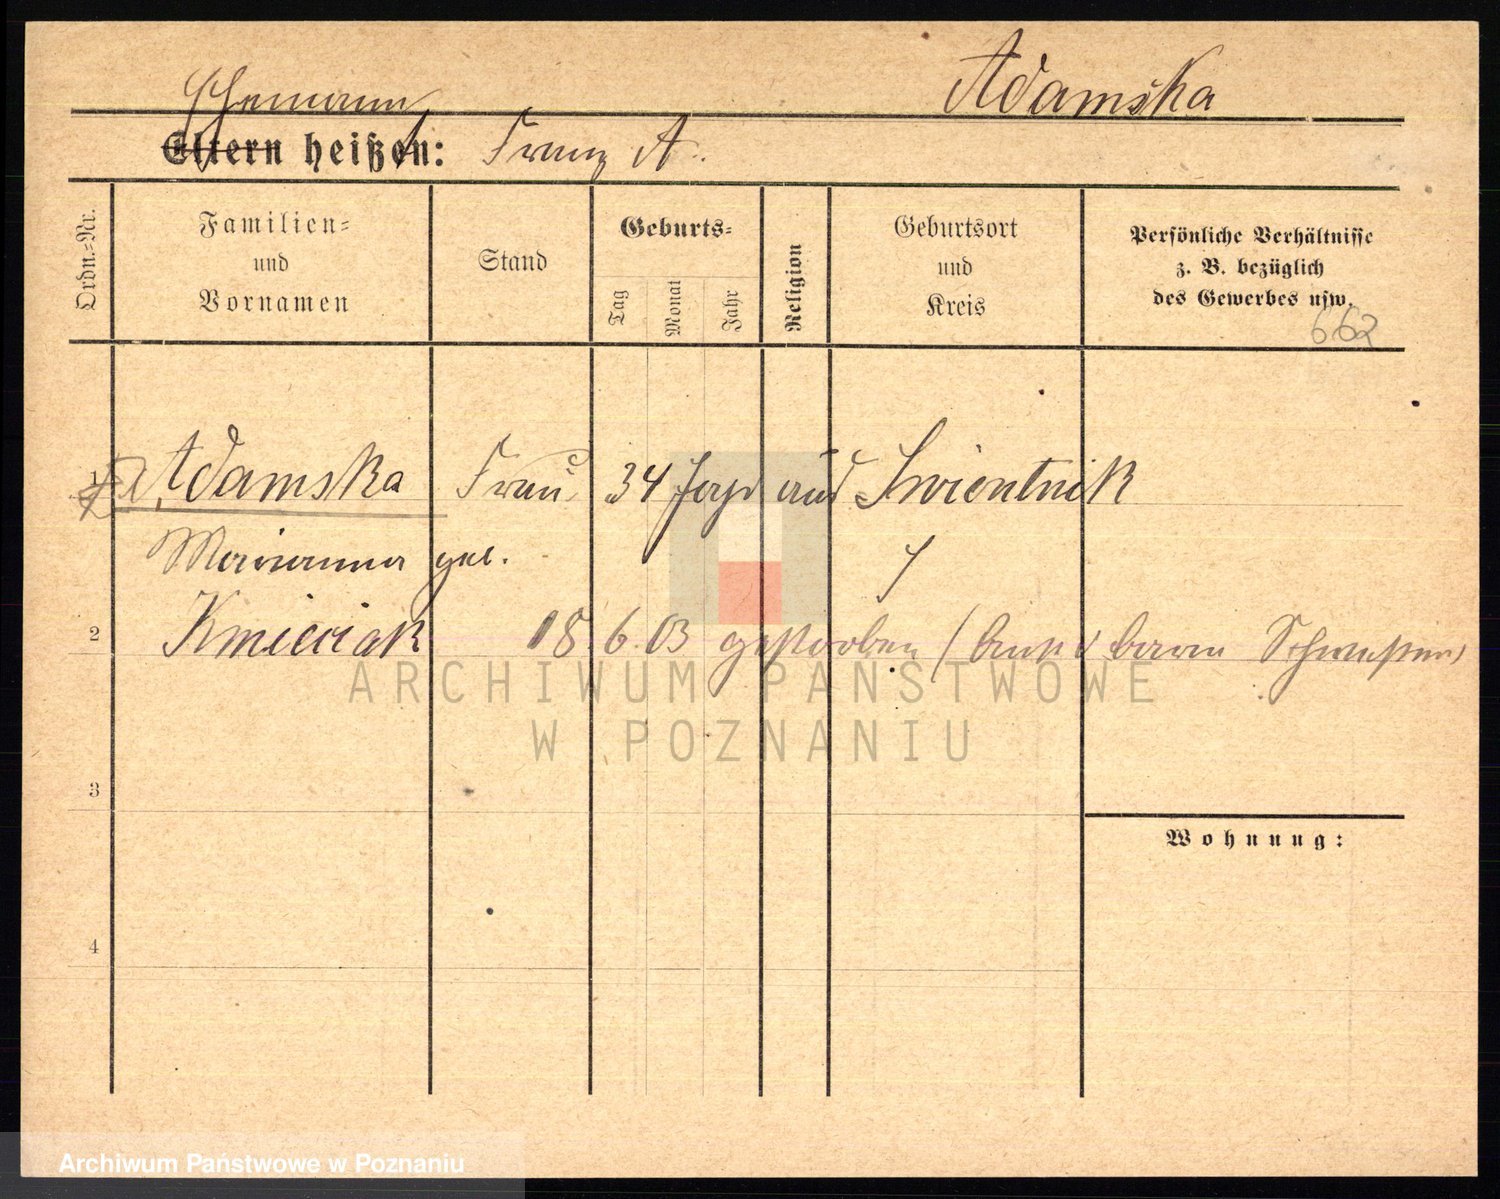 Adamska
Ehemann
Eltern heißen: Franz A.
Ordn.-Nr.
Familien-
und
Vornamen
Stand
Geburts-
Tag
Monat
Jahr
Religion
Geburtsort
und
Kreis
Persönliche Verhältnisse
z. B. bezüglich
des Gewerbes usw.
662
1 Adamska Frau 34 Jahr aus Swientnik
Marianna geb.
2 Kmieciak 18 6. 03 gestorben (
ARCHIWUM PAŃSTWOWE
W POZNANIU
3
Wohnung:
4
Archiwum Państwowe w Poznaniu